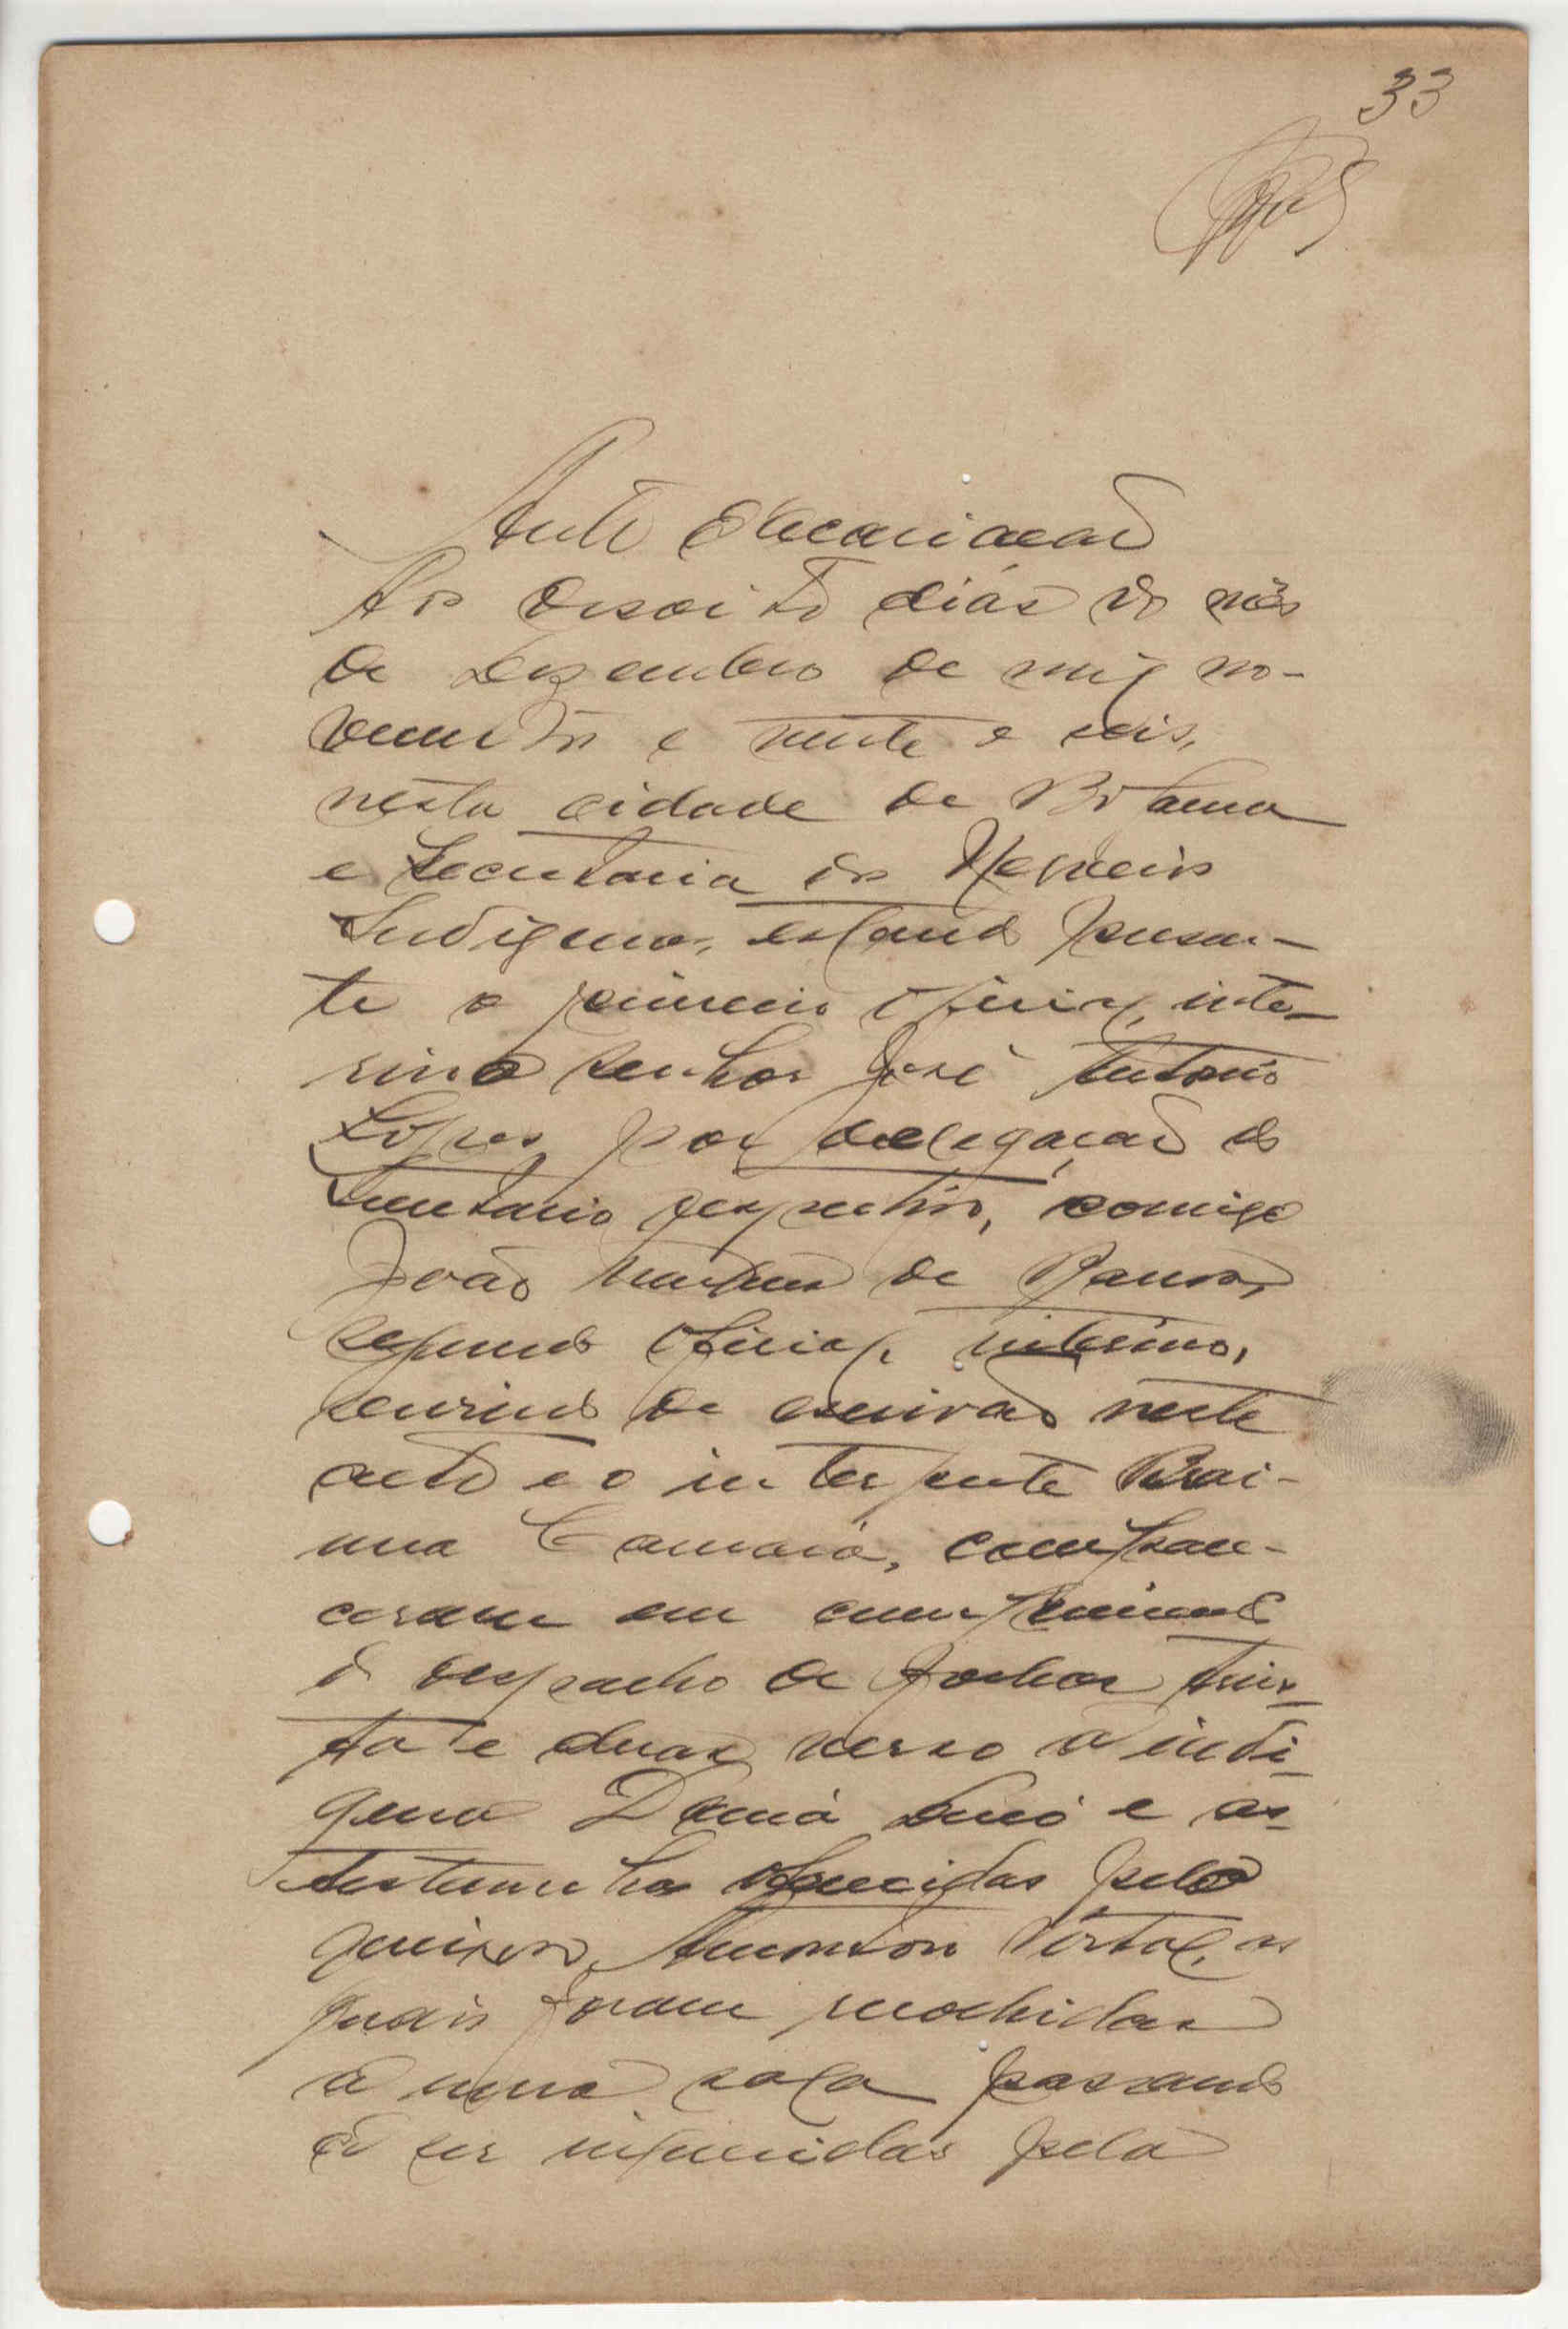 33
Auto declaração
Aos desoito dias do mês
de Dezembro de mil no-
vecentos e vinte e seis,
nesta cidade de Bolama
e Secretaria dos Negocios
Indigenas, estando presen-
te o primeiro oficial, inte-
rino senhor José Antonio
Lopes, por delegação do
Secretario respectivo, comigo
João de Barros,
segundo oficial, interino,
servindo de escrivão neste
acto e o interprete Brai-
ma Camará, compare-
ceram em cumprimento
do despacho de folhas trin-
ta e duas verso a indi-
gena e as
testemunhas oferecidas pelo
queixoso, as
quais foram recolhidas
a uma sala passando
a ser inqueridas pela